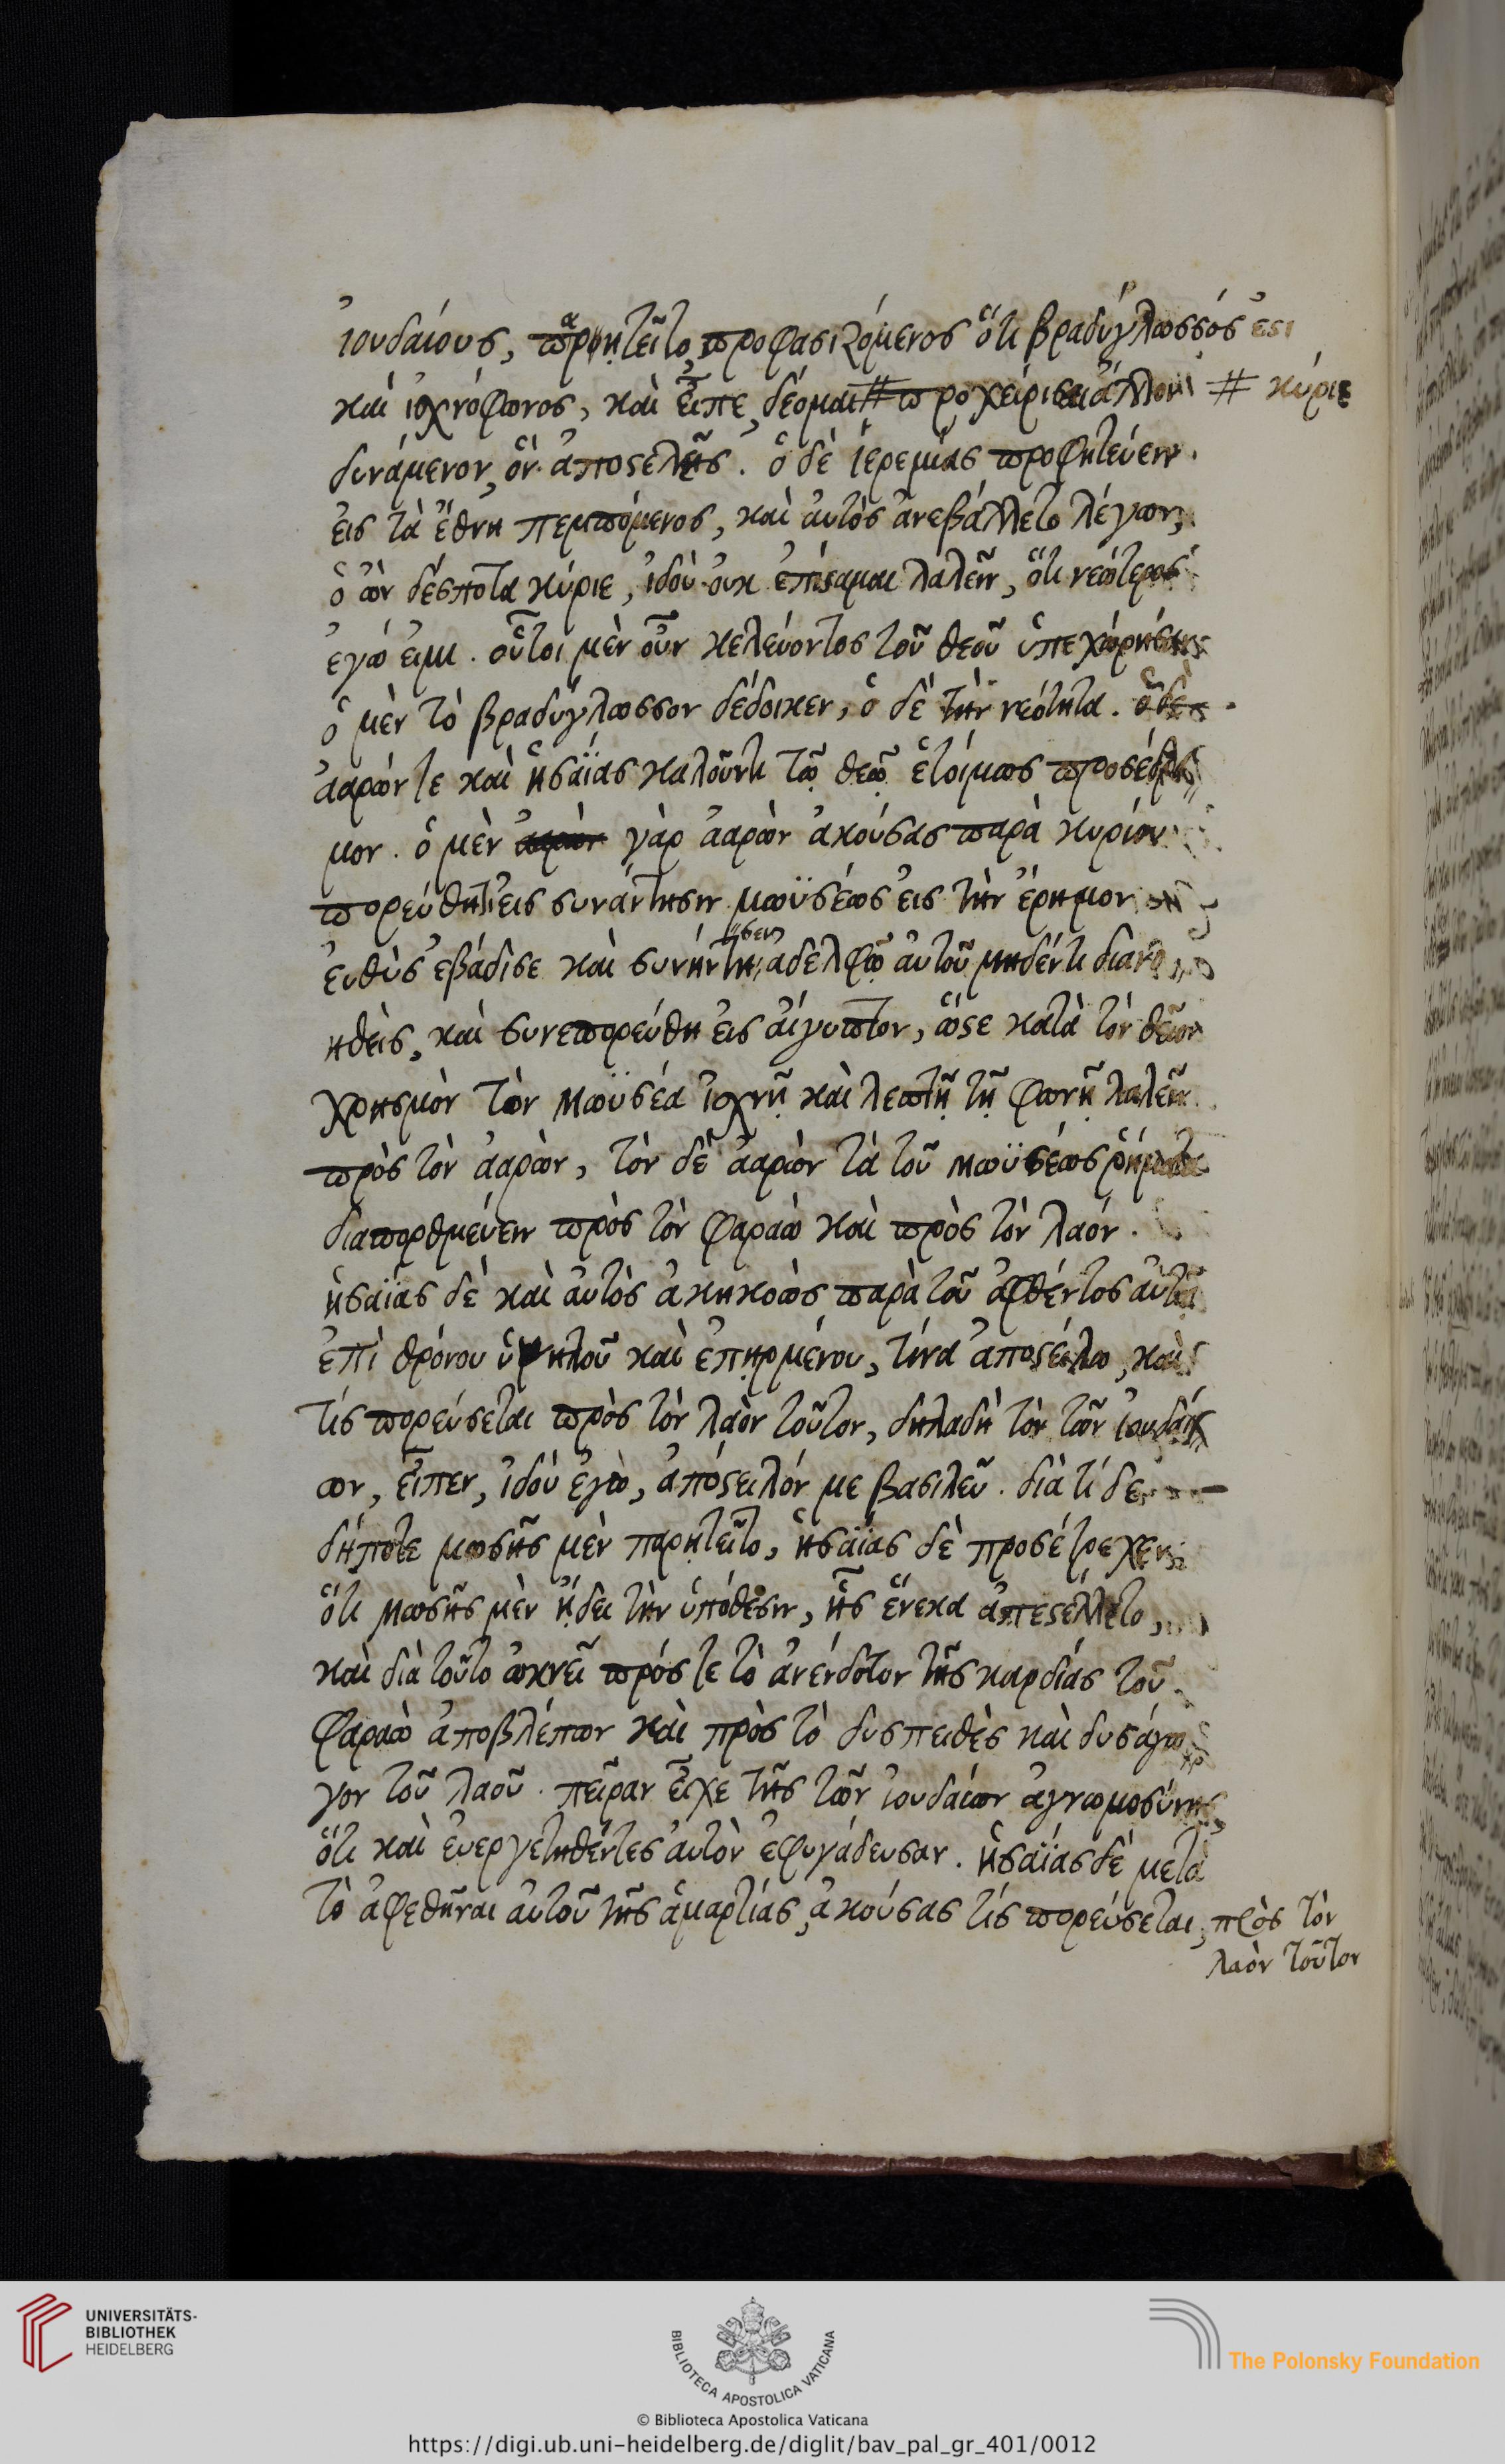 ἰουδαίους, παρῃτεῖτο προφασιζόμενος ὅτι βραδύγλωσσός ἐστι
καὶ ἰσχνόφωνος, καὶ εἶπε δέομαι # προχείρισαι ἄλλον # κύριε
δυνάμενον, ὃν ἀποστελεῖς. ὁ δὲ ἱερεμίας προφητεύειν
εἰς τὰ ἔθνη πεμπόμενος, καὶ αὐτὸς ἀνεβάλλετο λέγων,
ὁ ὢν δέσποτα κύριε, ἰδοὺ οὐκ ἐπίσταμαι λαλεῖν, ὅτι νεώτερος
ἐγώ εἰμι. οὗτοι μὲν οὖν κελεύοντος τοῦ θεοῦ ὑπεχώρησαν
ὁ μὲν τὸ βραδύγλωσσον δέδοικεν, ὁ δὲ τὴν νεότητα.
ἀαρών τε καὶ ἡσαΐας καλοῦντι τῷ θεῷ ἑτοίμως προσέδρα
μον. ὁ μὲν γὰρ ἀαρὼν ἀκούσας παρὰ κυρίου
πορεύθητι εἰς συνάντησιν μωϋσέως εἰς τὴν ἔρημον
εὐθὺς ἐβάδισε καὶ συνήντησεν ἀδελφῷ αὐτοῦ μηδέν τι διανο
ηθεὶς, καὶ συνεπορεύθη εἰς αἴγυπτον, ὥστε κατὰ τὸν θεῖον
χρησμὸν τὸν μωϋσέα ἰσχνῇ καὶ λεπτῇ τῇ φωνῇ λαλεῖν
πρὸς τὸν ἀαρὼν, τὸν δὲ ἀαρὼν τὰ τοῦ μωϋσέως ῥήματα
διαπορθμεύειν πρὸς τὸν φαραὼ καὶ πρὸς τὸν λαόν.
ἡσαΐας δὲ καὶ αὐτὸς ἀκηκοὼς παρὰ τοῦ ὀφθέντος αὐτῷ
ἐπὶ θρόνου ὑψηλοῦ καὶ ἐπηρμένου, τίνα ἀποστείλω, καὶ
τίς πορεύσεται πρὸς τὸν λαὸν τοῦτον, δηλαδὴ τὸν τῶν ἰουδαί
ων, εἶπεν, ἰδοὺ ἐγὼ, ἀπόστειλόν με βασιλεῦ. διὰ τί δε
δήποτε μωσῆς μὲν παρῃτεῖτο, ἡσαΐας δὲ προσέτρεχεν
ὅτι μωσῆς μὲν ᾔδει τὴν ὑπόθεσιν, ἧς ἕνεκα ἀπεστέλλετο,
καὶ διὰ τοῦτο ὠκνεῖ πρός τε τὸ ἀνένδοτον τῆς καρδίας τοῦ
φαραὼ ἀποβλέπων καὶ πρὸς τὸ δυσπειθὲς καὶ δυσάγω
γον τοῦ λαοῦ. πεῖραν εἶχε τῆς τῶν ἰουδαίων ἀγνωμοσύνης
ὅτι καὶ εὐεργετηθέντες αὐτὸν ἐφυγάδευσαν. ἡσαΐας δὲ μετὰ
τὸ ἀφεθῆναι αὐτοῦ τῆς ἁμαρτίας, ἀκούσας τίς πορεύσεται, πρὸς τὸν
λαὸν τοῦτον
UNIVERSITÄTS-
BIBLIOTHEK
HEIDELBERG
BIBLIOTECA APOSTOLICA VATICANA
The Polonsky Foundation
© Biblioteca Apostolica Vaticana
https://digi.ub.uni-heidelberg.de/diglit/bav_pal_gr_401/0012